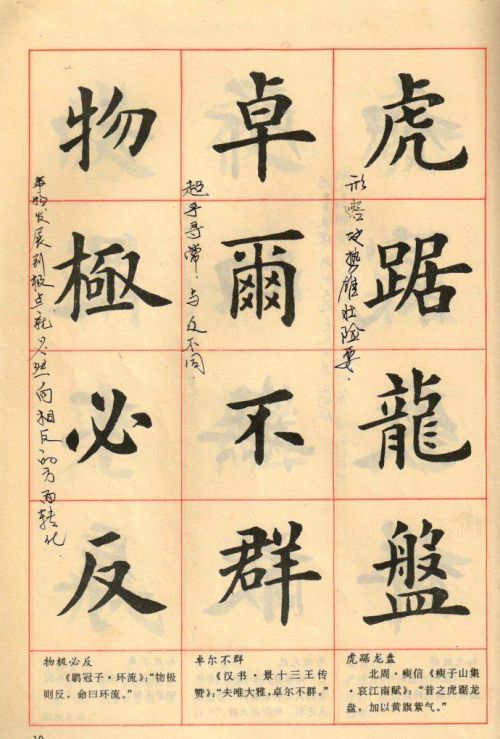 虎踞龍盤
形容地势雄壮险要.
卓爾不群
超乎寻常.与众不同.
物極必反
事物发展到极点就必然向相反的方面转化.
虎踞龙盘
北周·瘐信《瘐子山集
·哀江南赋》:“昔之虎踞龙
盘,加以黄旗紫气。”
卓尔不群
《汉书·景十三王传
赞》:“夫唯大雅,卓尔不群。”
物极必反
《鹖冠子·环流》:“物极
则反,命曰环流。”